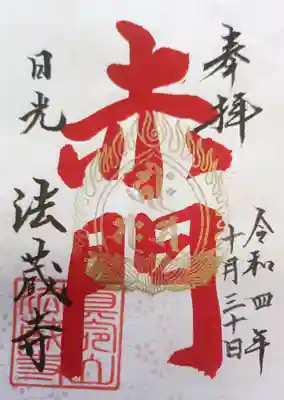 奉拝
令和四年
十月三十日
赤門
日光
法蔵寺